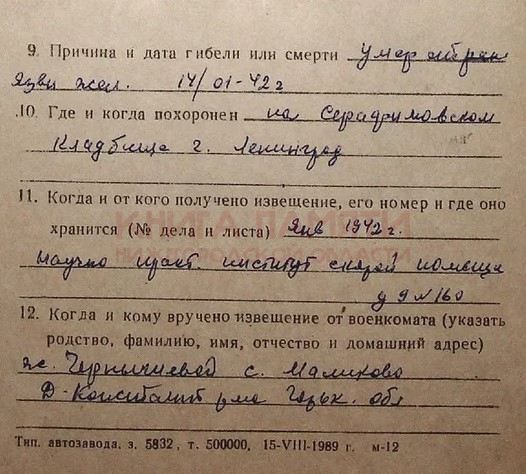 9. Причина и дата гибели или смерти умер от ран
язви жел. 14/01-42 г
10. Где и когда похоронен на Серафимовском
кладбище г. Ленинград
11. Когда и от кого получено извещение, его номер и где оно
КНИГА ПАМЯТИ
хранится (№ дела и листа) Янв 1942 г.
НИЖЕГОРОДСКОЙ ОБЛАСТИ
Научно практ. институт скорой помощи
д 9 № 160
12. Когда и кому вручено извещение от военкомата (указать
родство, фамилию, имя, отчество и домашний адрес)
ж. с. Маликово
Д-Константин р-на Горьк. обл
Тип. автозавода, з. 5832, т. 500000, 15-VIII-1989 г. м-12